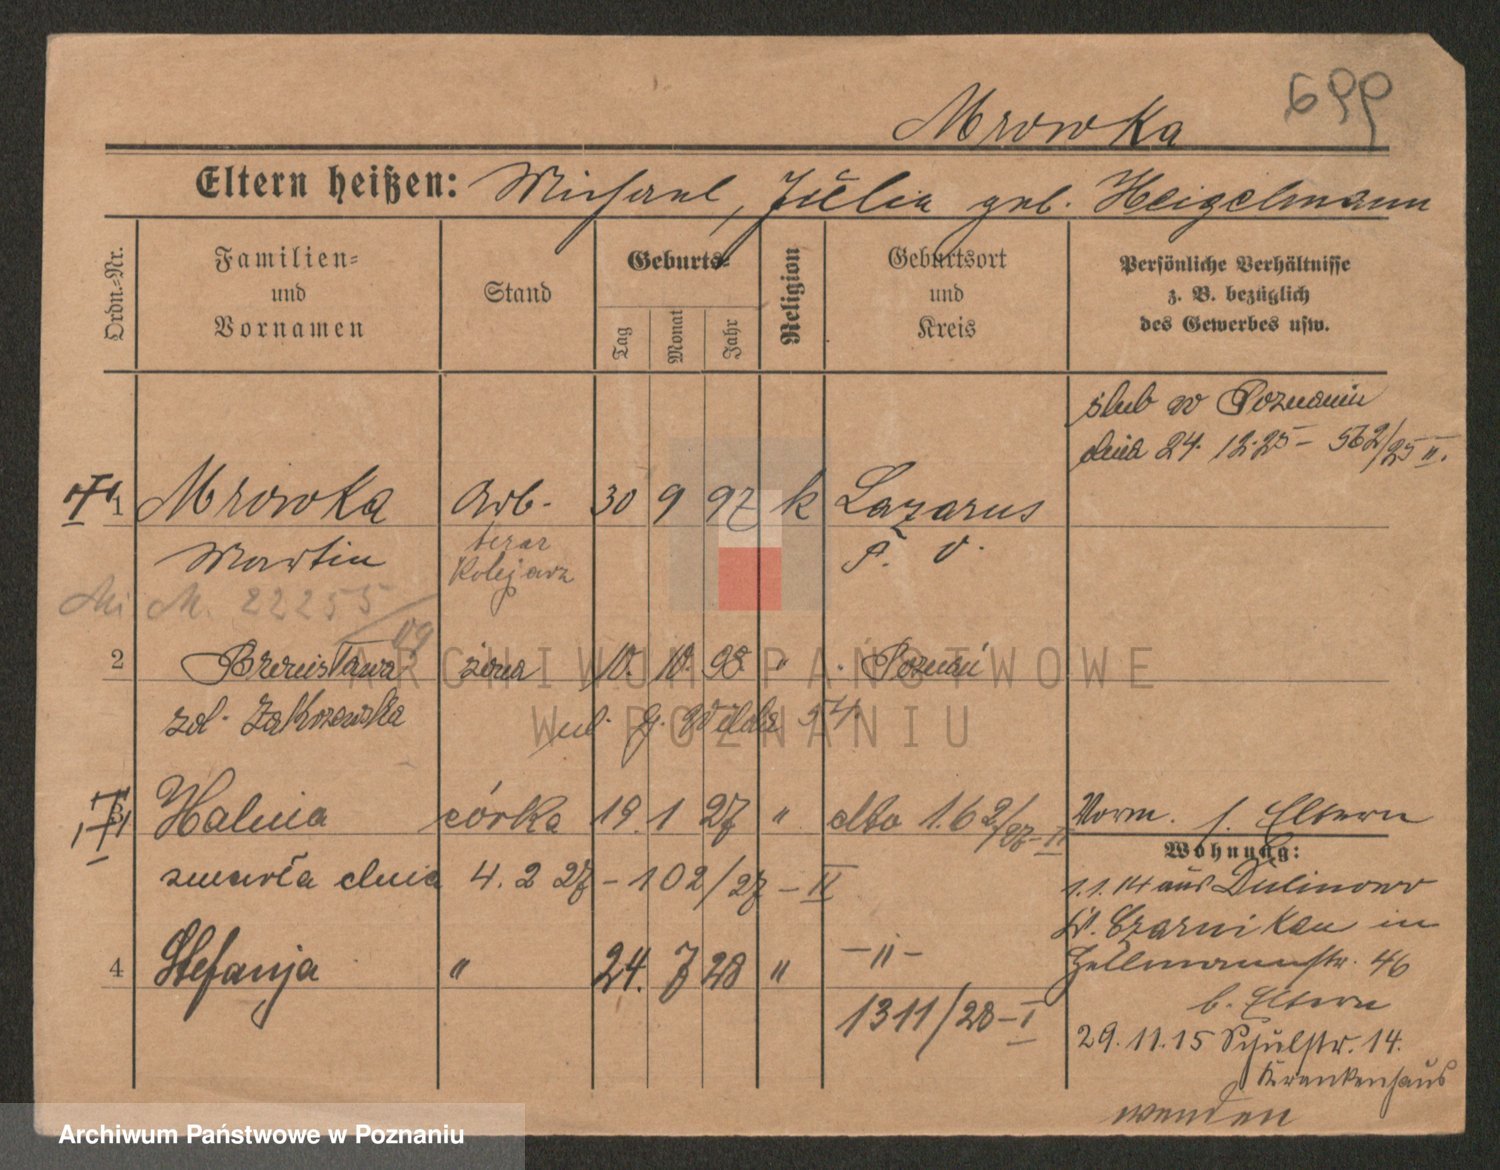 699
Mrowka
Eltern heißen: Michael, Julia geb. Heigelmann
Ordn.-Nr.
Familien-
und
Vornamen
Stand
Geburts-
Tag
Monat
Jahr
Religion
Geburtsort
und
Kreis
Persönliche Verhältnisse
z. B. bezüglich
des Gewerbes usw.
ślub w Poznaniu
dnia 24. 12. 25 – 562/25 II.
1 Mrowka Arb. 30 9 97 k Lazarus
Martin teraz
Kolejarz
M. 22255/
2 Bronisława żona 10. 10. 98 " Poznań
zd. Zakrzewska
3 Halina córka 19. 1 27 " dto 162/27–II Vorm. s. Eltern
Wohnung:
zmarła dnia 4. 2 27 – 102/27 – II
1.1.14 aus Dulinowo
Kr. Czarnikau in
Hellmannstr. 46
b. Eltern
4 Stefanja " 24. 7 28 " –"–
1311/28–I
29.11.15 Schulstr. 14.
Krankenhaus
wenden
ARCHIWUM PAŃSTWOWE
W POZNANIU
Archiwum Państwowe w Poznaniu